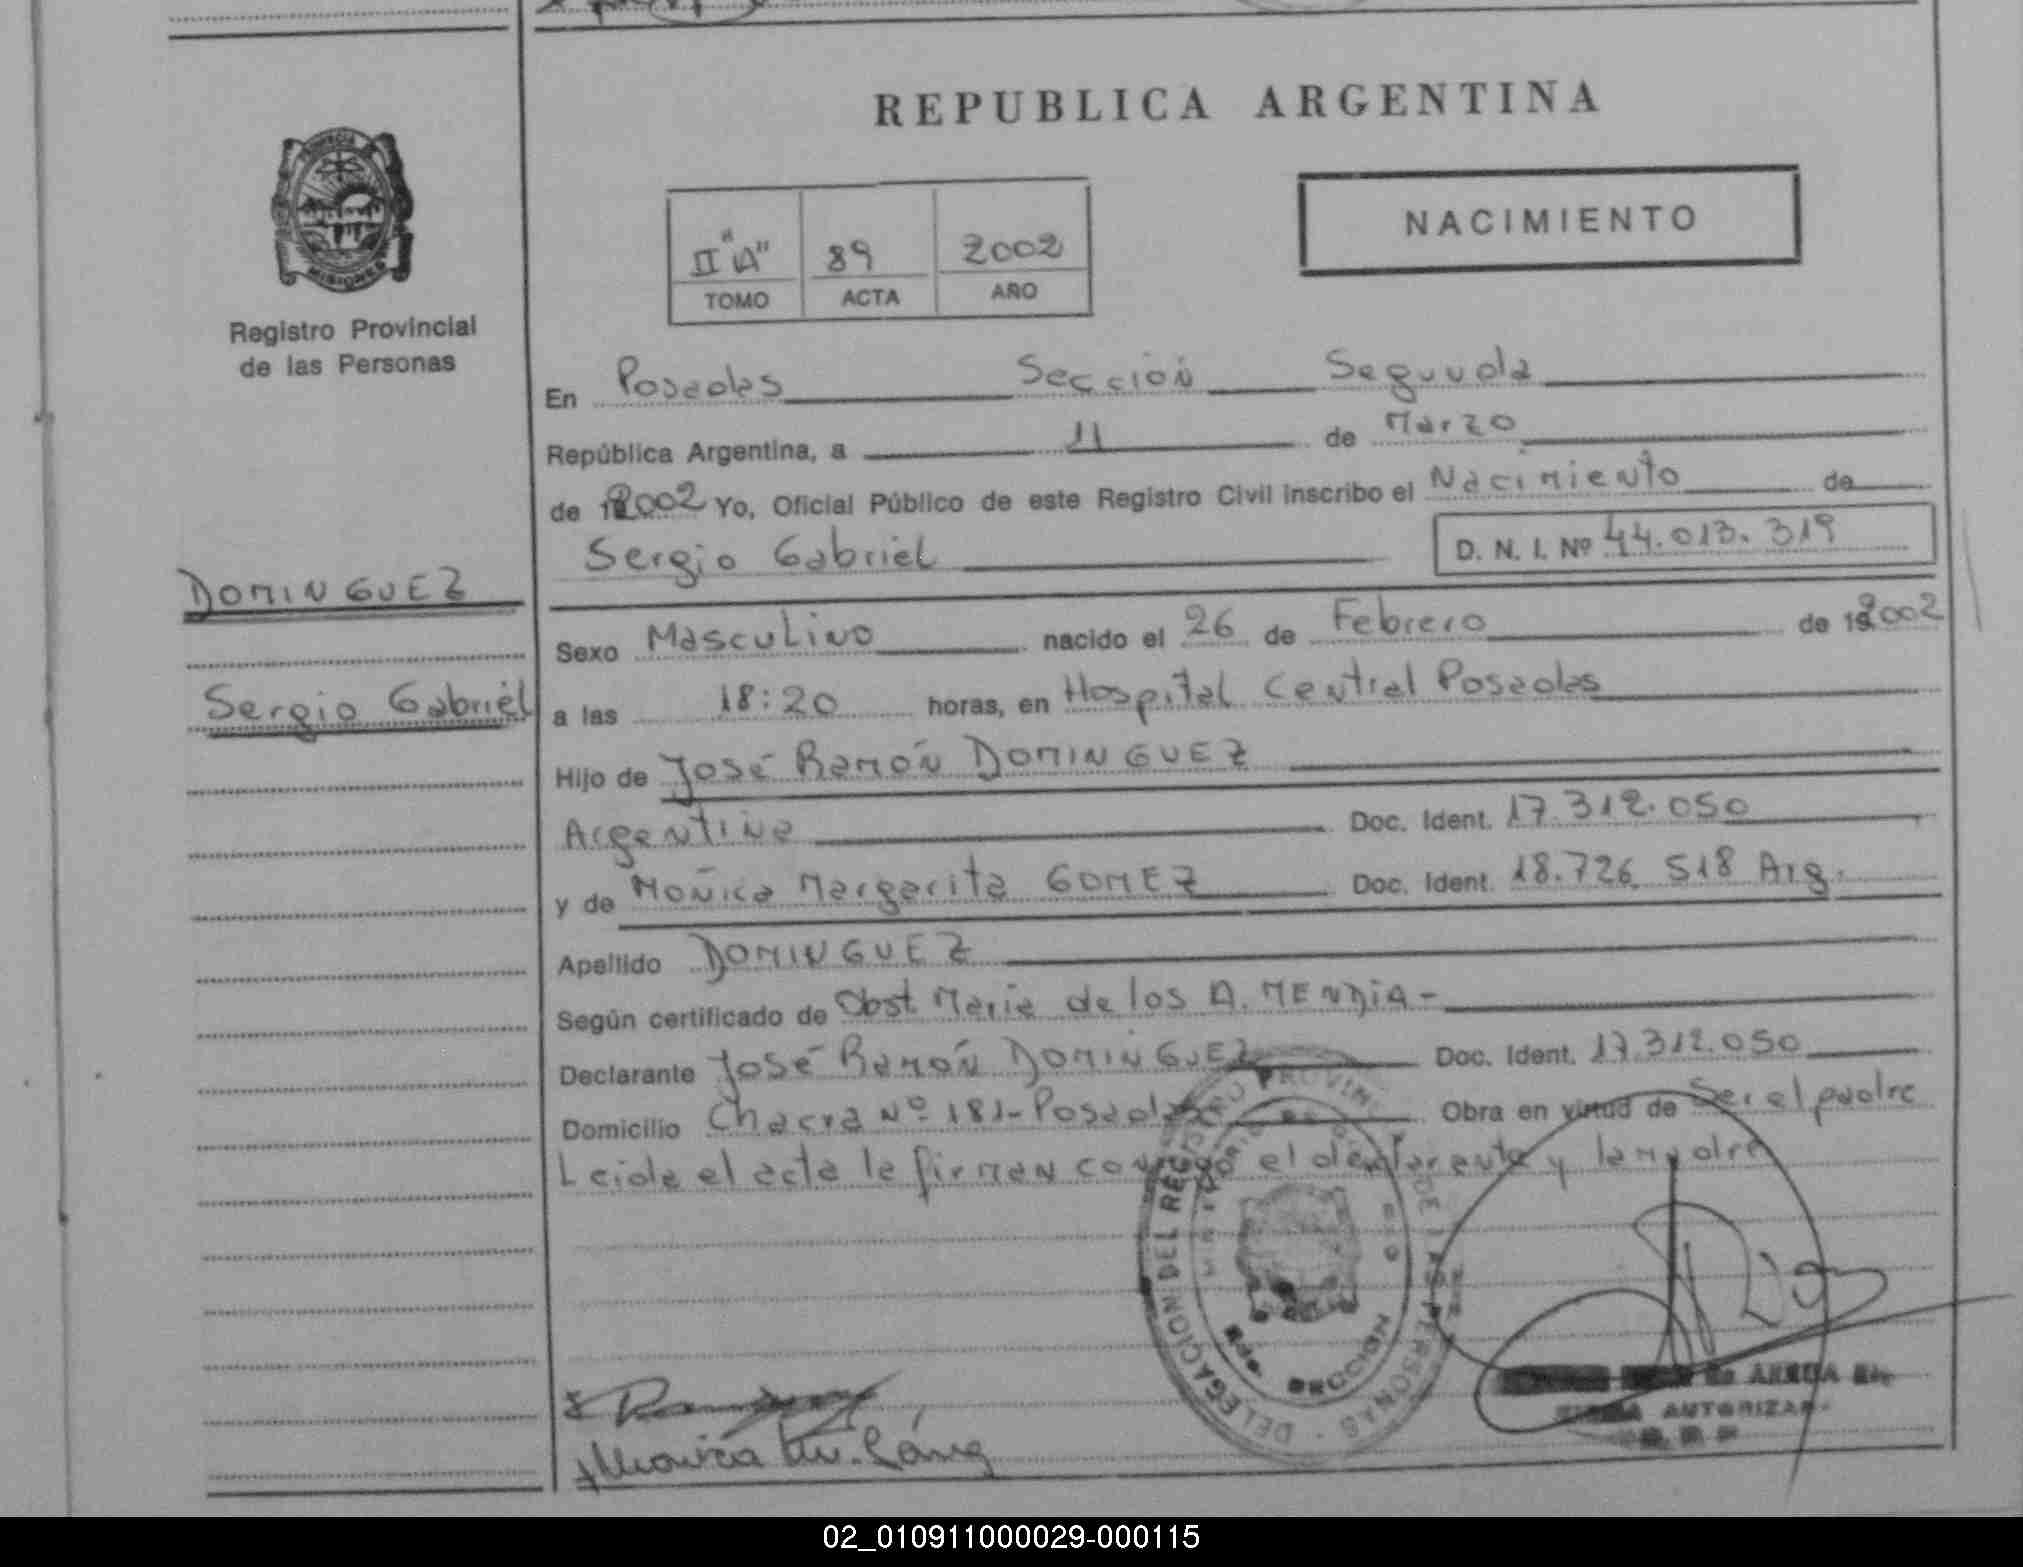 REPUBLICA ARGENTINA
NACIMIENTO
II "A" 89 2002
TOMO ACTA AÑO
PROVINCIA DE MISIONES
Registro Provincial
de las Personas
En Posadas Sección Segunda
República Argentina, a 11 de Marzo
de 2002 Yo, Oficial Público de este Registro Civil inscribo el Nacimiento de
Sergio Gabriel D. N. I. Nº 44.013.319
DOMINGUEZ
Sergio Gabriel
Sexo Masculino nacido el 26 de Febrero de 2002
a las 18:20 horas, en Hospital Central Posadas
Hijo de José Ramón DOMINGUEZ
Argentina Doc. Ident. 17.312.050
y de Mónica Margarita GOMEZ Doc. Ident. 18.726.518 Arg.
Apellido DOMINGUEZ
Según certificado de Obst Maria de los A. MENDIA-
Declarante José Ramón DOMINGUEZ Doc. Ident. 17.312.050
Domicilio Chacra Nº 181-Posadas Obra en virtud de Ser el padre
Leida el acta la firman conmigo el declarante y la madre
DELEGACION DEL REGISTRO PROVINCIAL DE LAS PERSONAS
SECCION
AUTORIZAD
02_010911000029-000115